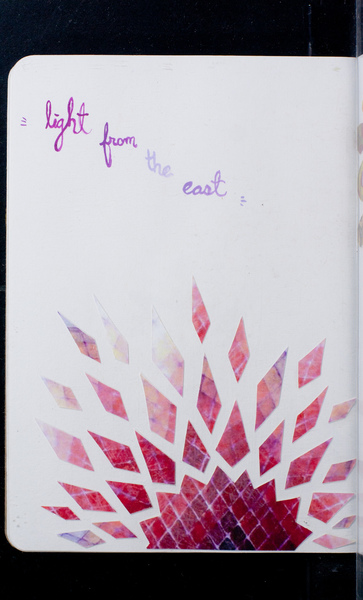 light from the east